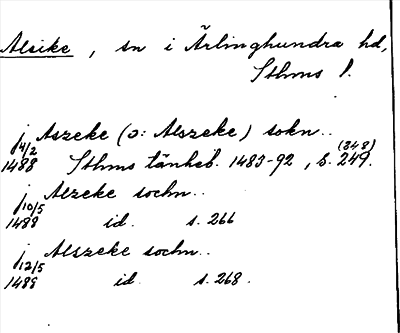 Alsike, sn i Ärlinghundra hd,
Sthms l.
j Aszeke (ɔ: Alszeke) sokn..
4/2 (248)
1488 Sthms tänkeb. 1483-92, s. 249.
j Alzeke sochn..
10/5
1488 id. s. 266
j Alszeke sochn..
12/5
1488 id. s. 268.